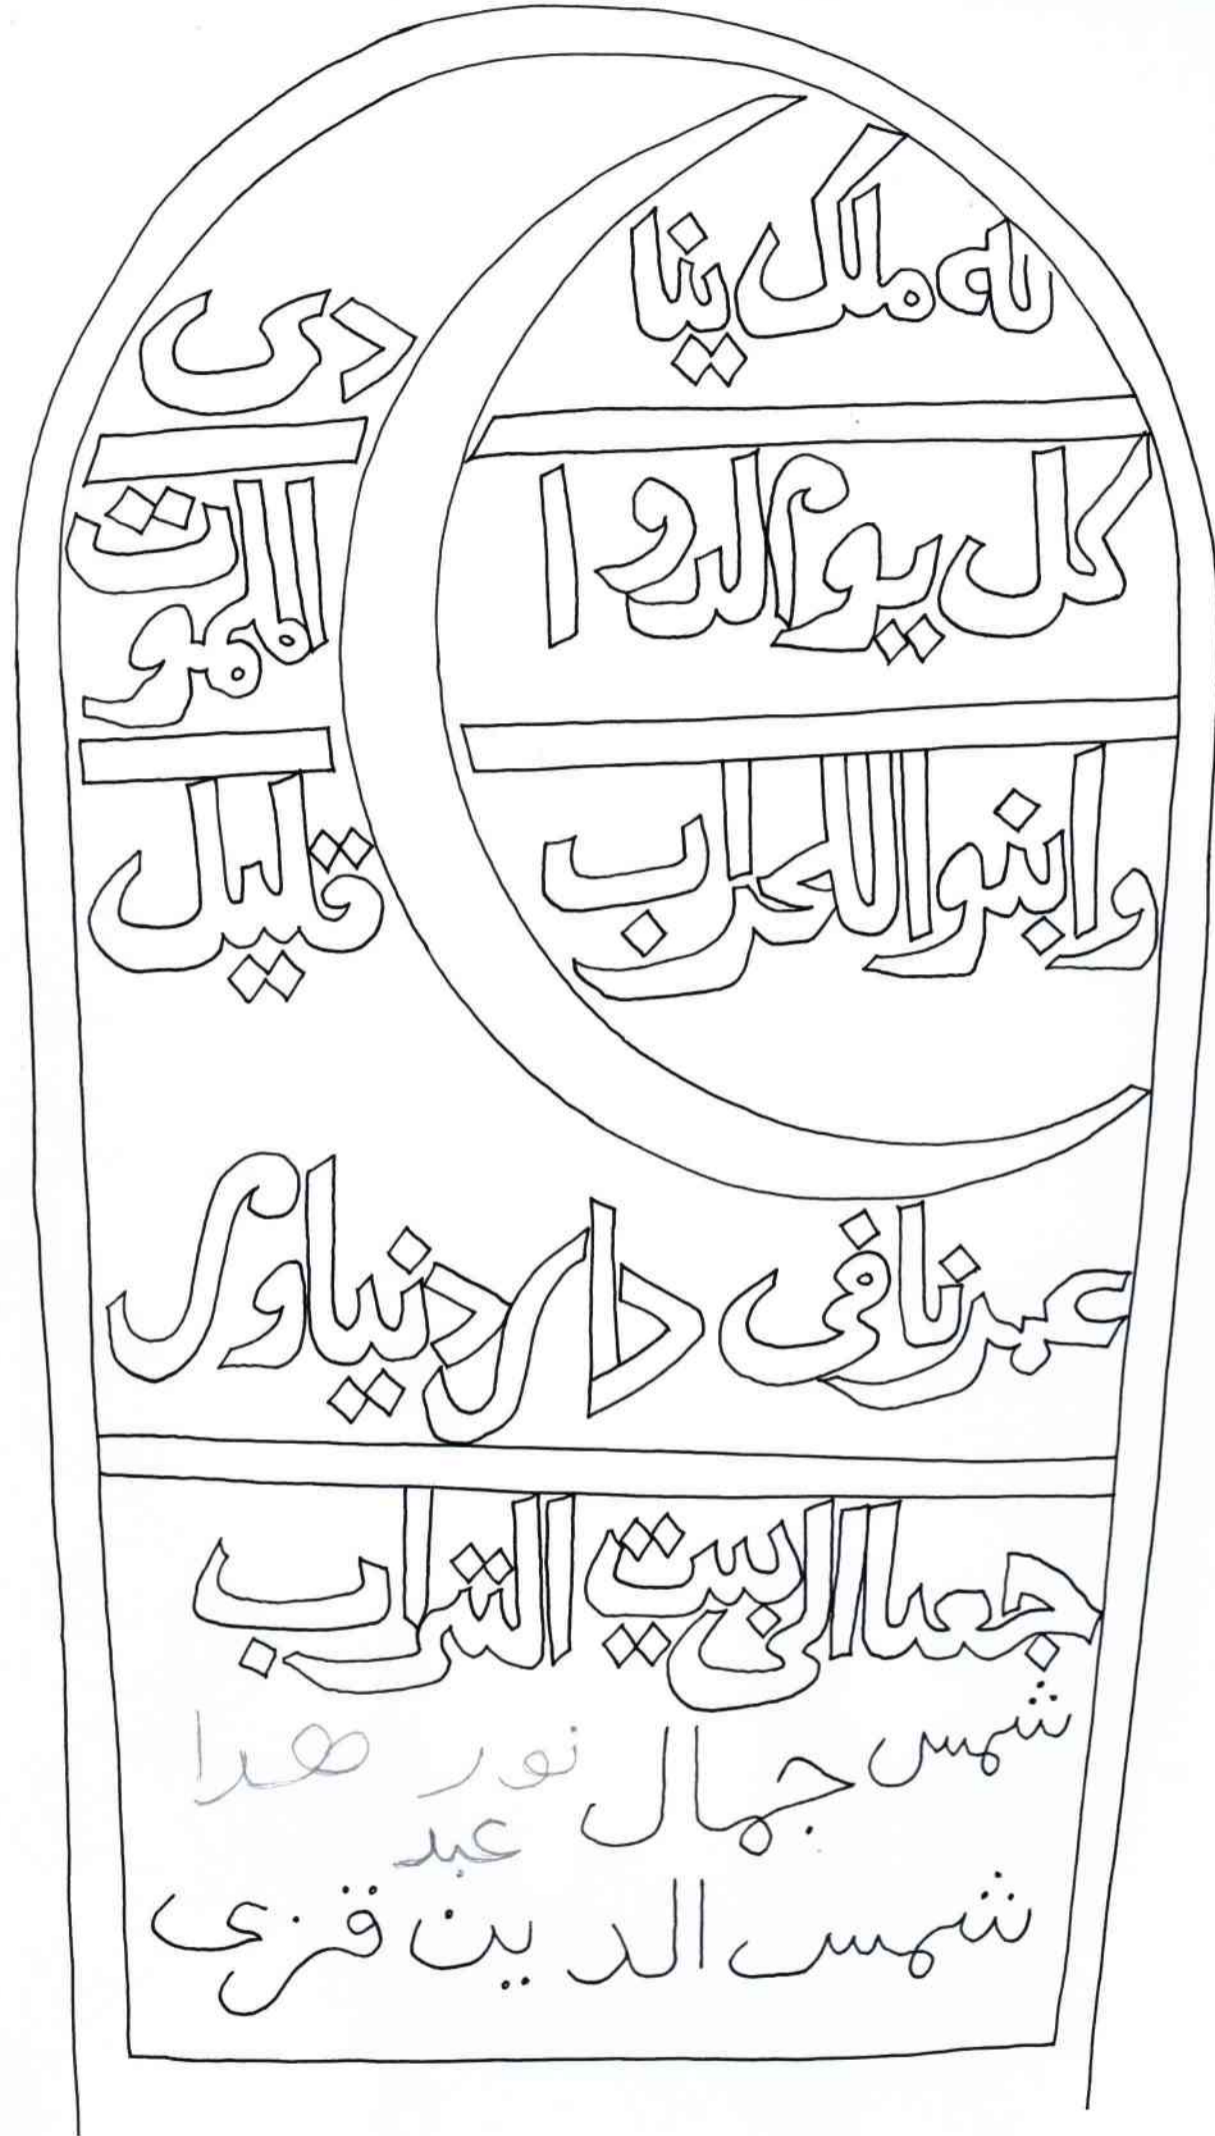 له ملك ينا دى
كل يوم لدوا الموت
وابنوا للحراب قليل
عمرنا فى دار دنيا ور
جعنا الى بيت التراب
شمس جمال نور هدا
عبد
شمس الدين قزى